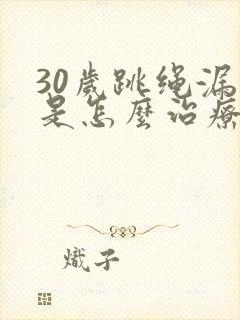 30歲跳绳漏
是怎麼治療
熾子